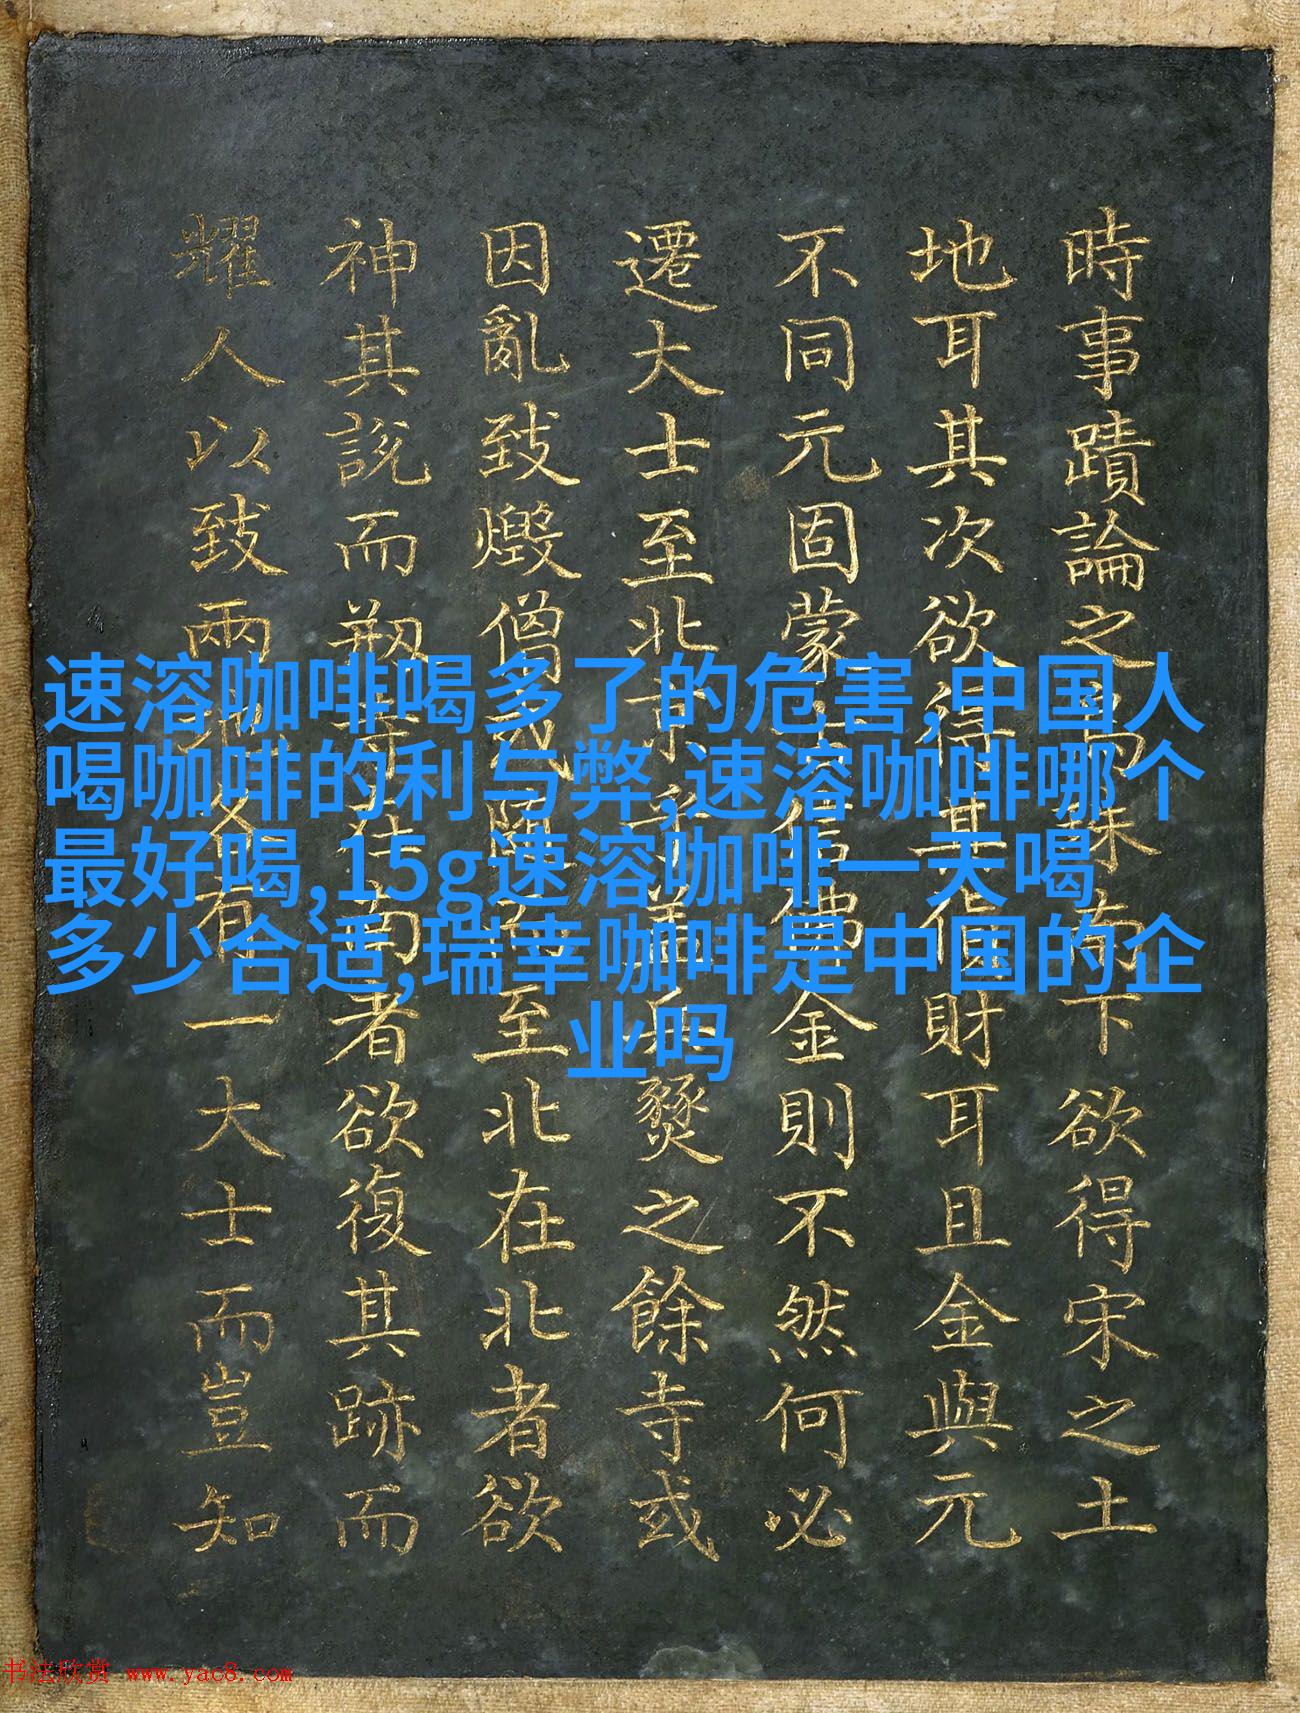 時事蹟論之
下欲得宋之土
地耳其次欲得其
財耳且金與元
不同元固蒙
佛金則不然何必
遷大士至北京
燹之餘寺或
因亂致燬僧或
至北在北者欲
神其說而
南者欲復其跡而
耀人以致兩地各有一大士而豈知
速溶咖啡喝多了的危害,中国人
喝咖啡的利与弊,速溶咖啡哪个
最好喝,15g速溶咖啡一天喝
多少合适,瑞幸咖啡是中国的企
业吗
书法欣赏 www.yac8.com